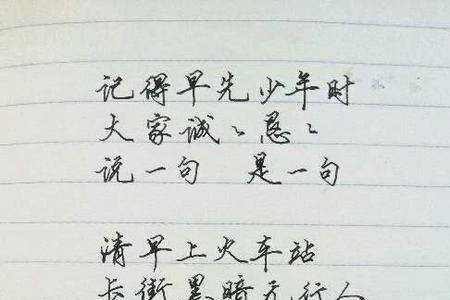 记得早先少年时
大家诚〻恳〻
说一句 是一句
清早上火车站
长街黑暗无行人